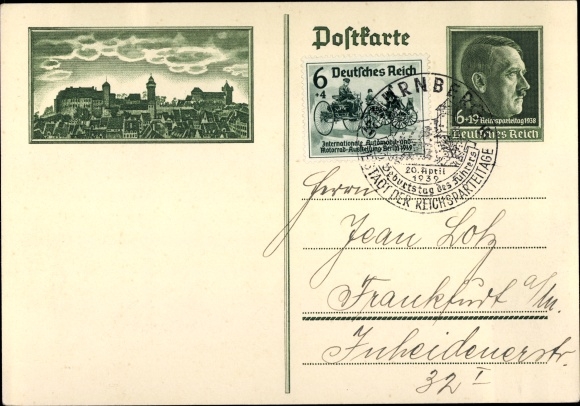 Postkarte
6
+4
Deutsches Reich
Internationale Automobil- und
Motorrad-Ausstellung Berlin 1939
6+19 Reichsparteitag 1938
Deutsches Reich
NÜRNBERG
20. April
1939
Geburtstag des Führers
STADT DER REICHSPARTEITAGE
Herrn
Jean Lotz
Frankfurt a/M.
Inheidenerstr.
32 I